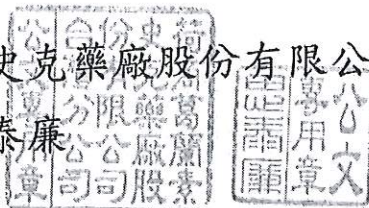 史克藥廠股份有限公
泰廉
荷商葛蘭素
史克藥廠股
份有限公司
台灣分公司
公文專用章
公文
專用章
泰廉